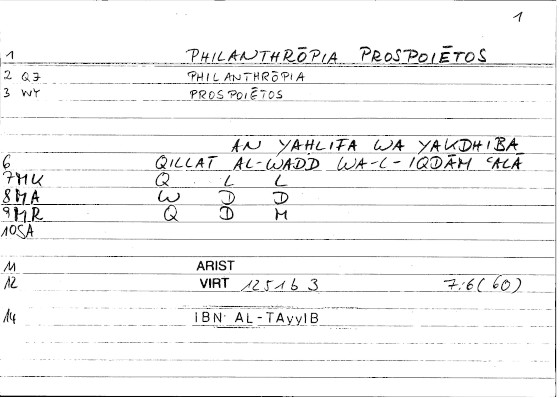 1
1 PHILANTHRŌPIA PROSPOIĒTOS
2 QJ PHILANTHRŌPIA
3 WY PROSPOIĒTOS
AN YAHLIFA WA YAKDHIBA
6 QILLAT AL-WADD WA-L-IQDĀM ʿALĀ
7MK Q L L
8MA W D D
9MR Q D M
10SA
11 ARIST
12 VIRT 1251b 3 7.6(60)
14 IBN AL-TAyyIB